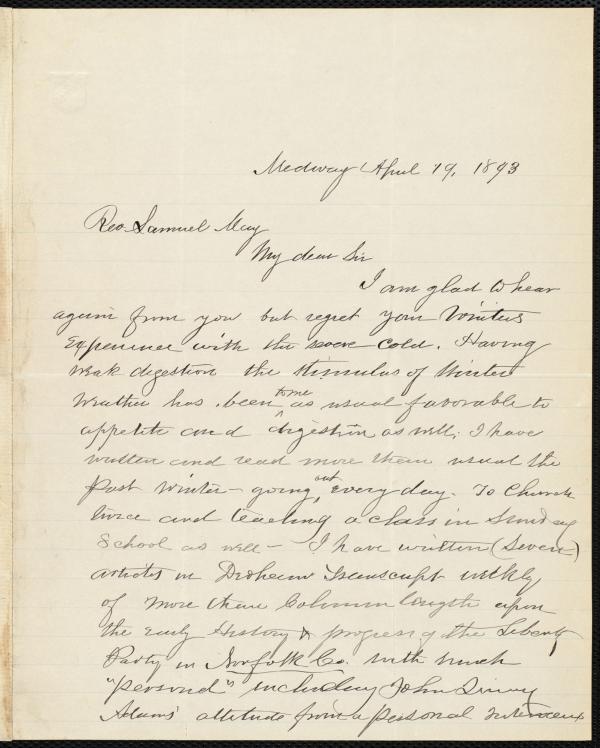 Medway April 19, 1893
Rev. Samuel May
My dear Sir
I am glad to hear
again from you but regret your Winters
Experience with the severe cold. Having
weak digestion the stimulus of Winter
Weather has been to me as usual favorable to
appetite and digestion as well. I have
written and read more than usual the
past winter - going out every day. To Church
twice and teaching a class in Sunday
School as well - I have written (seven)
articles in Dedham Transcript weekly
of more than Column length upon
the early History & progress of the Liberty
Party in Norfolk Co. with much
"personal" including John Quincy
Adams' attitude from a personal interview